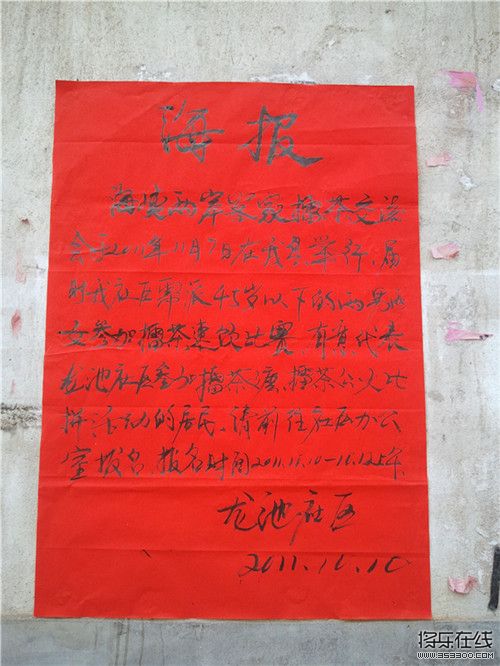 海报
海峡两岸客家擂茶交流
会于2011年11月7日在我县举行,届
时我社区需派45岁以下的两男两
女参加擂茶速饮比赛,有意代表
龙池社区参加擂茶演,擂茶公火比
拼活动的居民,请前往社区办公
室报名,报名时间2011.10.10-10.12上午
龙池社区
2011.10.10
将乐在线
www.353300.com